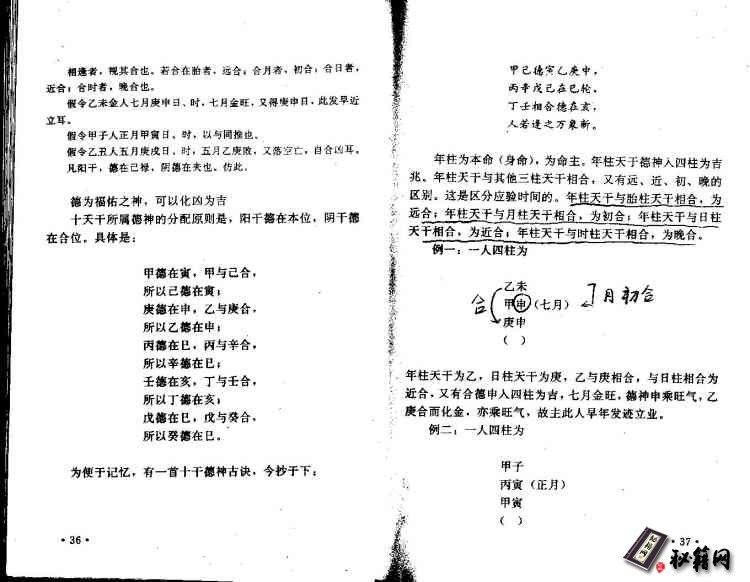 相逢者，视其合也。若合在胎者，远合；合月者，初合；合日者，
近合；合时者，晚合也。
假令乙未金人七月庚申日、时，七月金旺，又得庚申日，此发早近
立耳。
假令甲子人正月甲寅日、时，以与同推也。
假令乙丑人五月庚戌日、时，五月乙庚败，又落空亡，自合凶耳。
凡阳干，德在己禄，阴德在夫也。仿此。
德为福佑之神，可以化凶为吉
十天干所属德神的分配原则是，阳干德在本位，阴干德
在合位。具体是：
甲德在寅，甲与己合，
所以己德在寅；
庚德在申，乙与庚合，
所以乙德在申；
丙德在巳，丙与辛合，
所以辛德在巳；
壬德在亥，丁与壬合，
所以丁德在亥；
戊德在巳，戊与癸合，
所以癸德在巳。
为便于记忆，有一首十干德神古诀，今抄于下：
·36·
甲己德寅乙庚申，
丙辛戊己在巳轮，
丁壬相合德在亥，
人若逢之万象新。
年柱为本命（身命），为命主。年柱天干德神入四柱为吉
兆。年柱天干与其他三柱天干相合，又有远、近、初、晚的
区别。这是区分应验时间的。年柱天干与胎柱天干相合，为
远合；年柱天干与月柱天干相合，为初合；年柱天干与日柱
天干相合，为近合；年柱天干与时柱天干相合，为晚合。
例一：一人四柱为
乙未
合 甲申（七月） 月初合
庚申
（ ）
年柱天干为乙，日柱天干为庚，乙与庚相合，与日柱相合为
近合，又有合德申入四柱为吉，七月金旺，德神申乘旺气，乙
庚合而化金，亦乘旺气，故主此人早年发迹立业。
例二：一人四柱为
甲子
丙寅（正月）
甲寅
（ ）
·37·
秘籍网